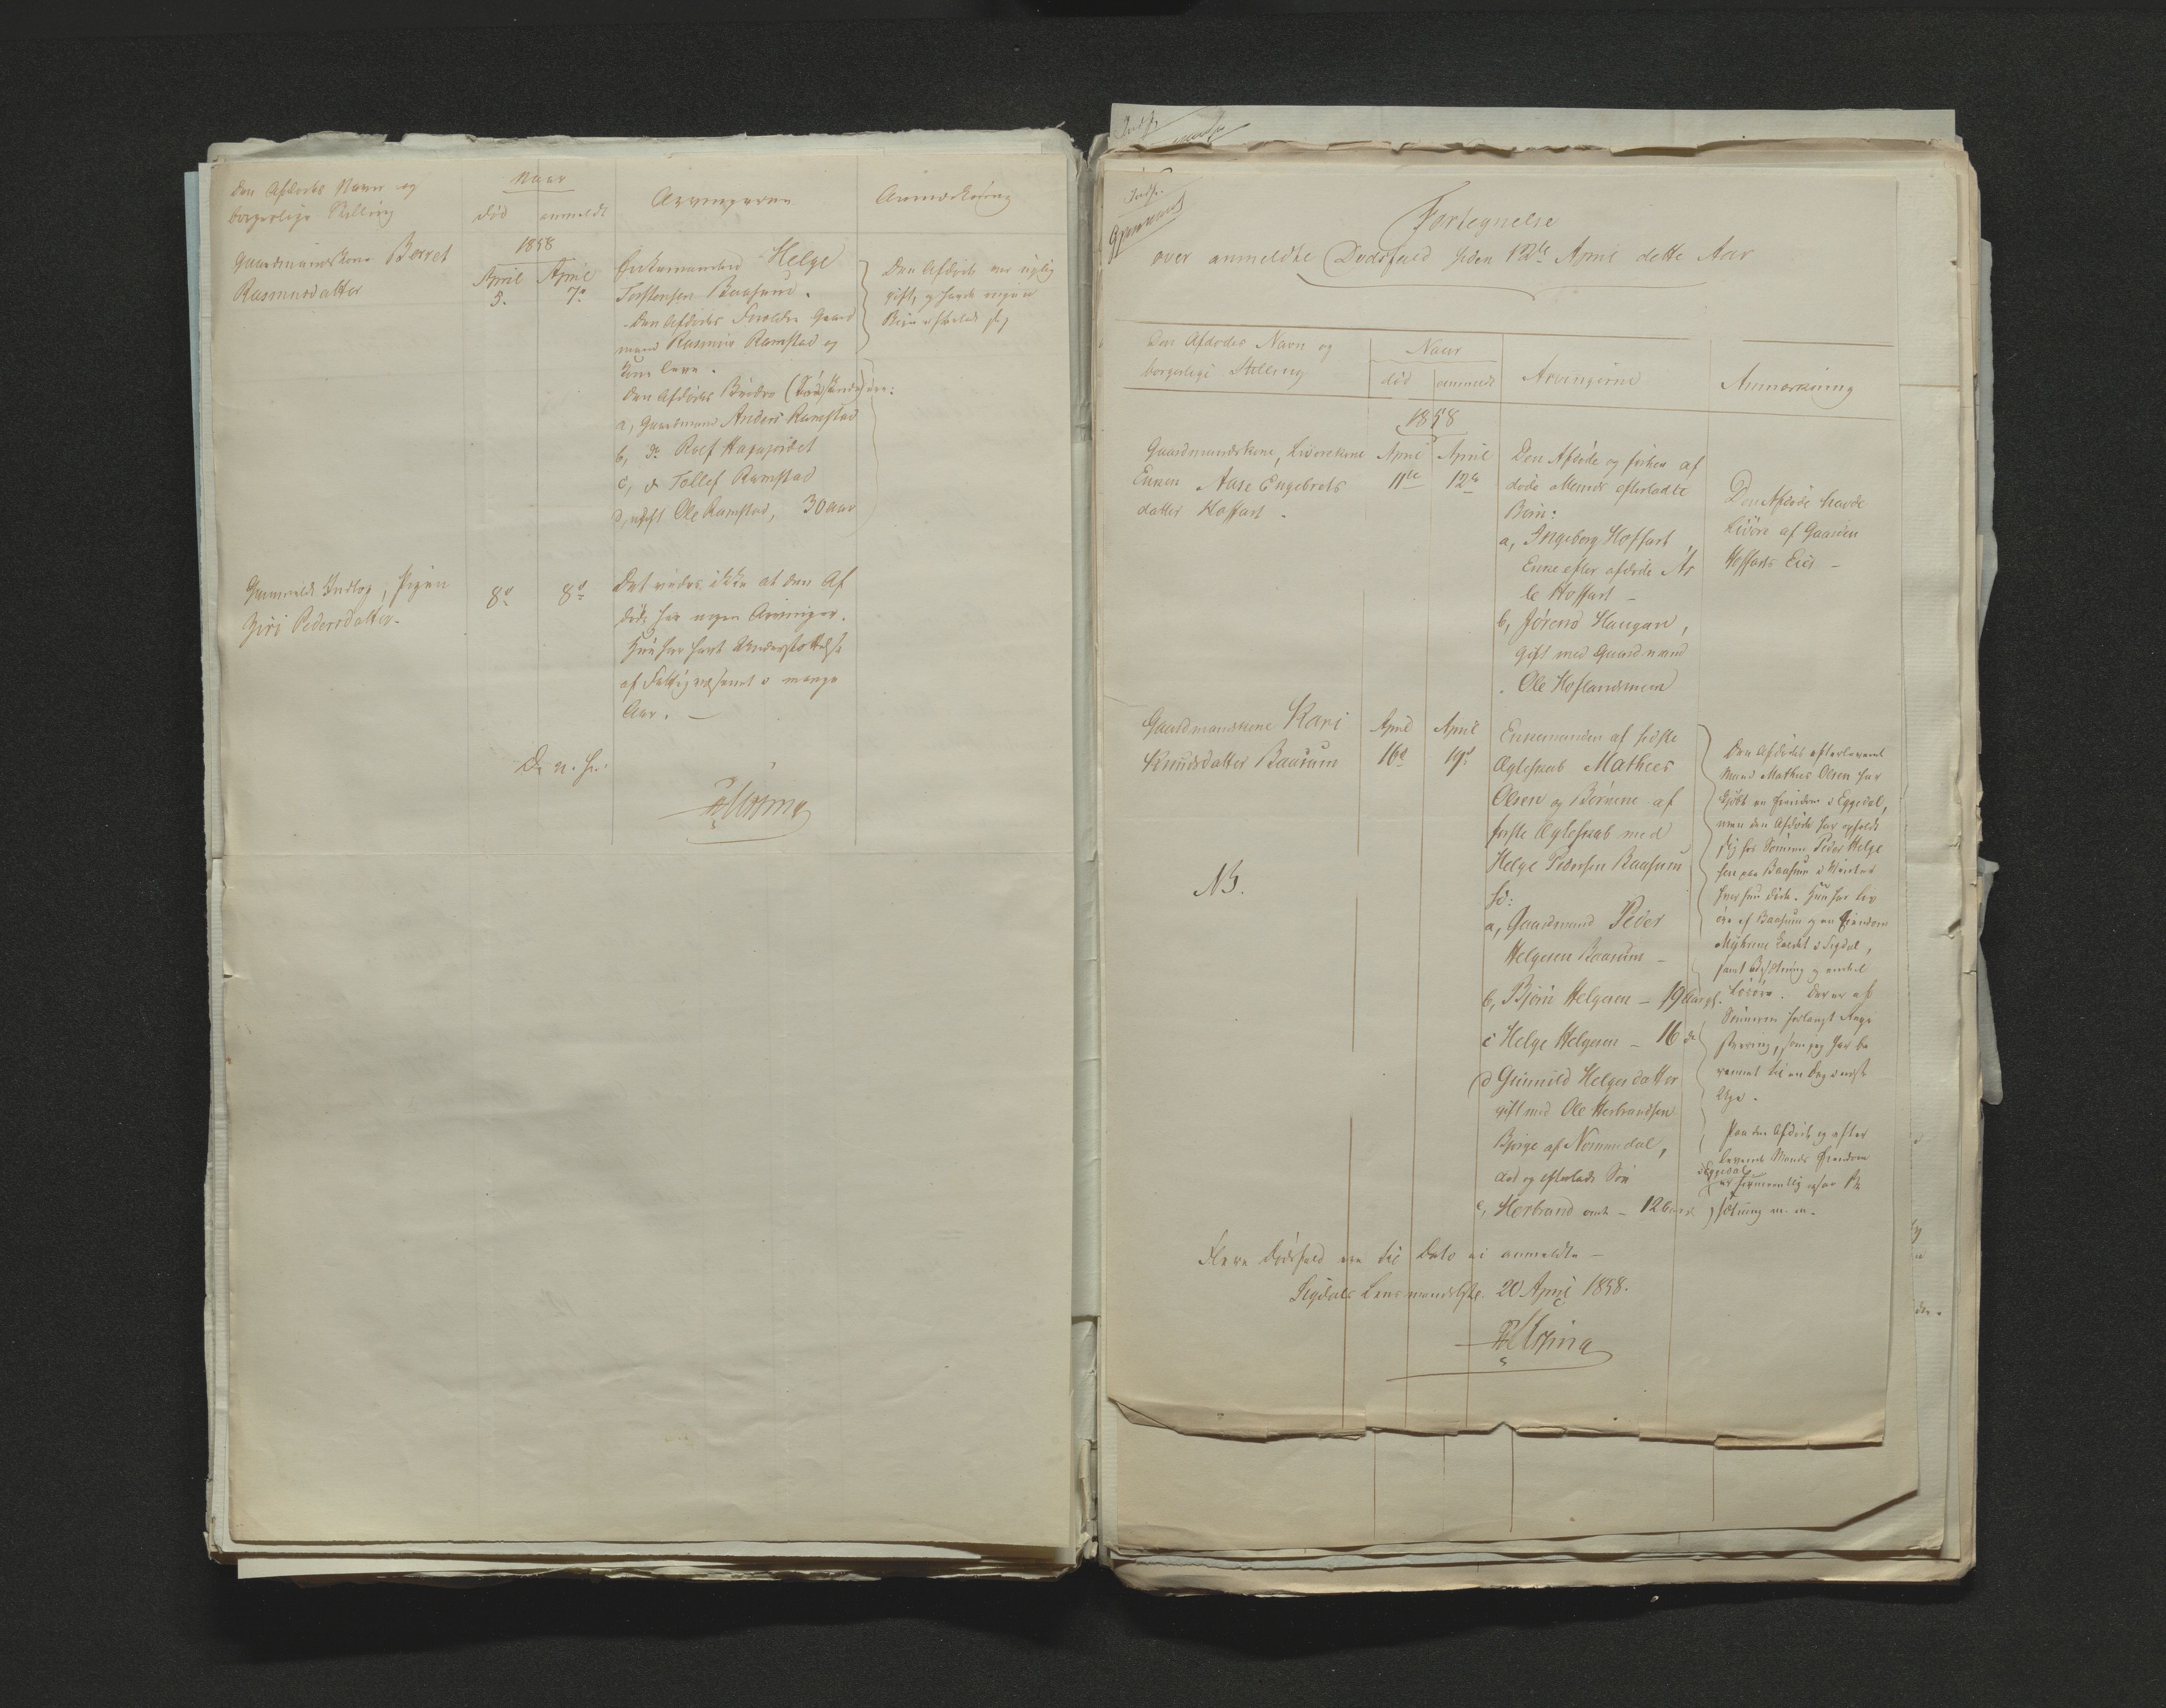 Den Afdødes Navn og
borgerlige Stilling
Naar
død anmeldt
Arvingerne
Anmærkning
1858
Gaardmandskone Berret
Rasmusdatter
April
5.
April
7de
Enkemanden Helge
Torstensen Baasum.
Den Afdødes Forældre Gaard
mand Rasmus Ramstad og
Kone leve.
Den Afdødes Brødre (Søskende) ere:
a, Gaardmand Anders Ramstad
b, do Rolf
c, do Tollef Ramstad
d, ugift Ole Ramstad, 30 aar
Den Afdøde var nylig
gift, og havde ingen
Børn efterladt sig
Gunnhilds Indlog, Pigen
Giri Pedersdatter.
8de
8de
Det vides ikke at den Af
døde har nogen Arvinger.
Hun har havt Understøttelse
af Fattigvæsenet i mange
Aar. —
D. u. s.
Indf.
Fortegnelse
over anmeldte Dødsfald siden 12te April dette Aar
Den Afdødes Navn og
borgerlige Stilling
Naar
død anmeldt
Arvingerne
Anmærkning
1858
Gaardmandskone, Livørekone
Enken Aase Engebrets
datter Hoffart.
April
11te
April
12te
Den Afdøde og forhen af
døde Mands efterladte
Børn:
a, Ingeborg Hoffart,
Enke efter afdøde Ar
le Hoffart —
b, Jørend Haugan,
gift med Gaardmand
Ole Hoflandsmoen
Den Afdøde havde
Livøre af Gaarden
Hoffarts Eier —
Gaardmandskone Kari
Knudsdatter Baasum
April
16de
April
19de
NB.
Enkemanden af sidste
Ægteskab Mathees
Olsen og Børnene af
første Ægteskab med
Helge Pedersen Baasum
so:
a, Gaardmand Peder
Helgesen Baasum —
b, Bjørn Helgesen — 19 Aar gl.
c Helge Helgesen — 16 do
d Gunnild Helgesdatter
gift med Ole Herbrandsen
Bjørge af Nommedal,
død og efterladt Søn
e, Herbrand omtr. — 12 Aar
Den Afdødes efterlevende
Mand Mathees Olsen har
kjøbt en Eiendom i Eggedal,
men den Afdøde har opholdt
sig hos Sønnen Peder Helge
sen paa Baasum i Vinter
hvor hun døde. Hun har Liv
øre af Baasum og en Eiendom
Myhrene kaldet i Sigdal,
samt Besætning og andet
Løsøre. Der er af
Sønnerne forlangt Regi
strering, som jeg har be
rammet til en Dag i næste
Uge.
Paa den Afdøde og efter
levende Mands Eiendom
i Eggedal
er formentlig ogsaa Be
sætning m. m.
Flere Dødsfald ere til Dato ei anmeldte —
Sigdals Lensmandsbst. 20 April 1858.